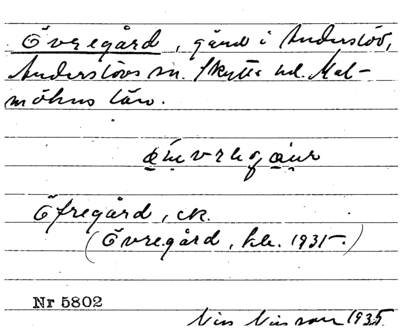 Övregård, gård i Anderslöv,
Anderslövs sn. Skytts hd. Mal-
möhus län.
Öfregård, ek.
(Övregård, kle. 1931.)
Nr 5802
Nils Nilsson 1935